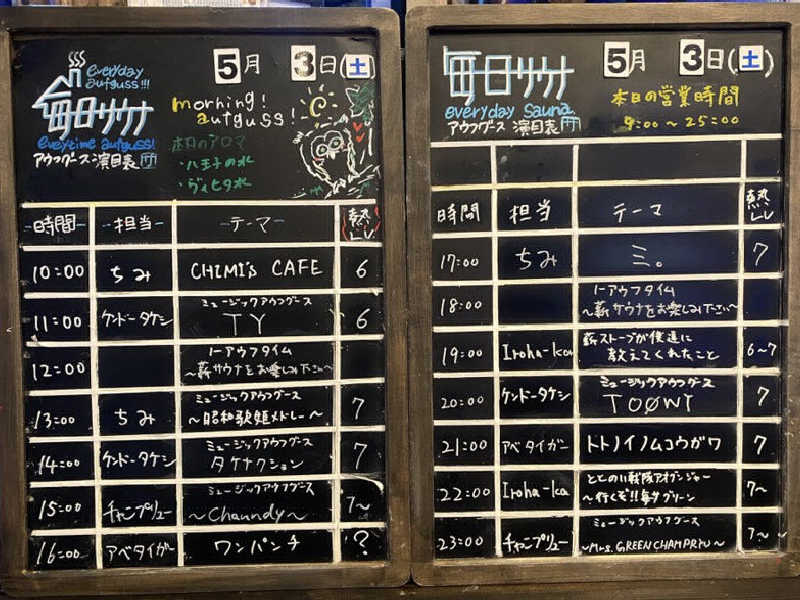 everyday
autguss!!!
毎日サウナ
everytime autguss!
アウフグース 演目表
5月 3日(土)
morning!
autguss!
本日のアロマ
・八王子の水
・ヴィヒタ水
時間 担当 テーマ 熱Lv
10:00 ちみ CHIMI's CAFE 6
11:00 ケンドータケシ ミュージックアウフグース
TY 6
12:00 ノーアウフタイム
～薪サウナをお楽しみ下さい～
13:00 ちみ ミュージックアウフグース
～昭和歌謡メドレー～ 7
14:00 ケンドータケシ ミュージックアウフグース
タケナクション 7
15:00 チャンプリュー ミュージックアウフグース
～Chaundy～ 7～
16:00 アベタイガー ワンパンチ ?
毎日サウナ
everyday sauna
アウフグース 演目表
5月 3日(土)
本日の営業時間
9:00～25:00
時間 担当 テーマ 熱Lv
17:00 ちみ 三。 7
18:00 ノーアウフタイム
～薪サウナをお楽しみ下さい～
19:00 Iroha-ka 薪ストーブが僕達に
教えてくれたこと 6~7
20:00 ケンドータケシ ミュージックアウフグース
TOØWI 7
21:00 アベタイガー トトノイノムコウガワ 7
22:00 Iroha-ka ととのい戦隊アオグンジャー
～行くぞ!!毎サグリーン 7～
23:00 チャンプリュー ミュージックアウフグース
～Mrs. GREEN CHAMPRYU～ 7～